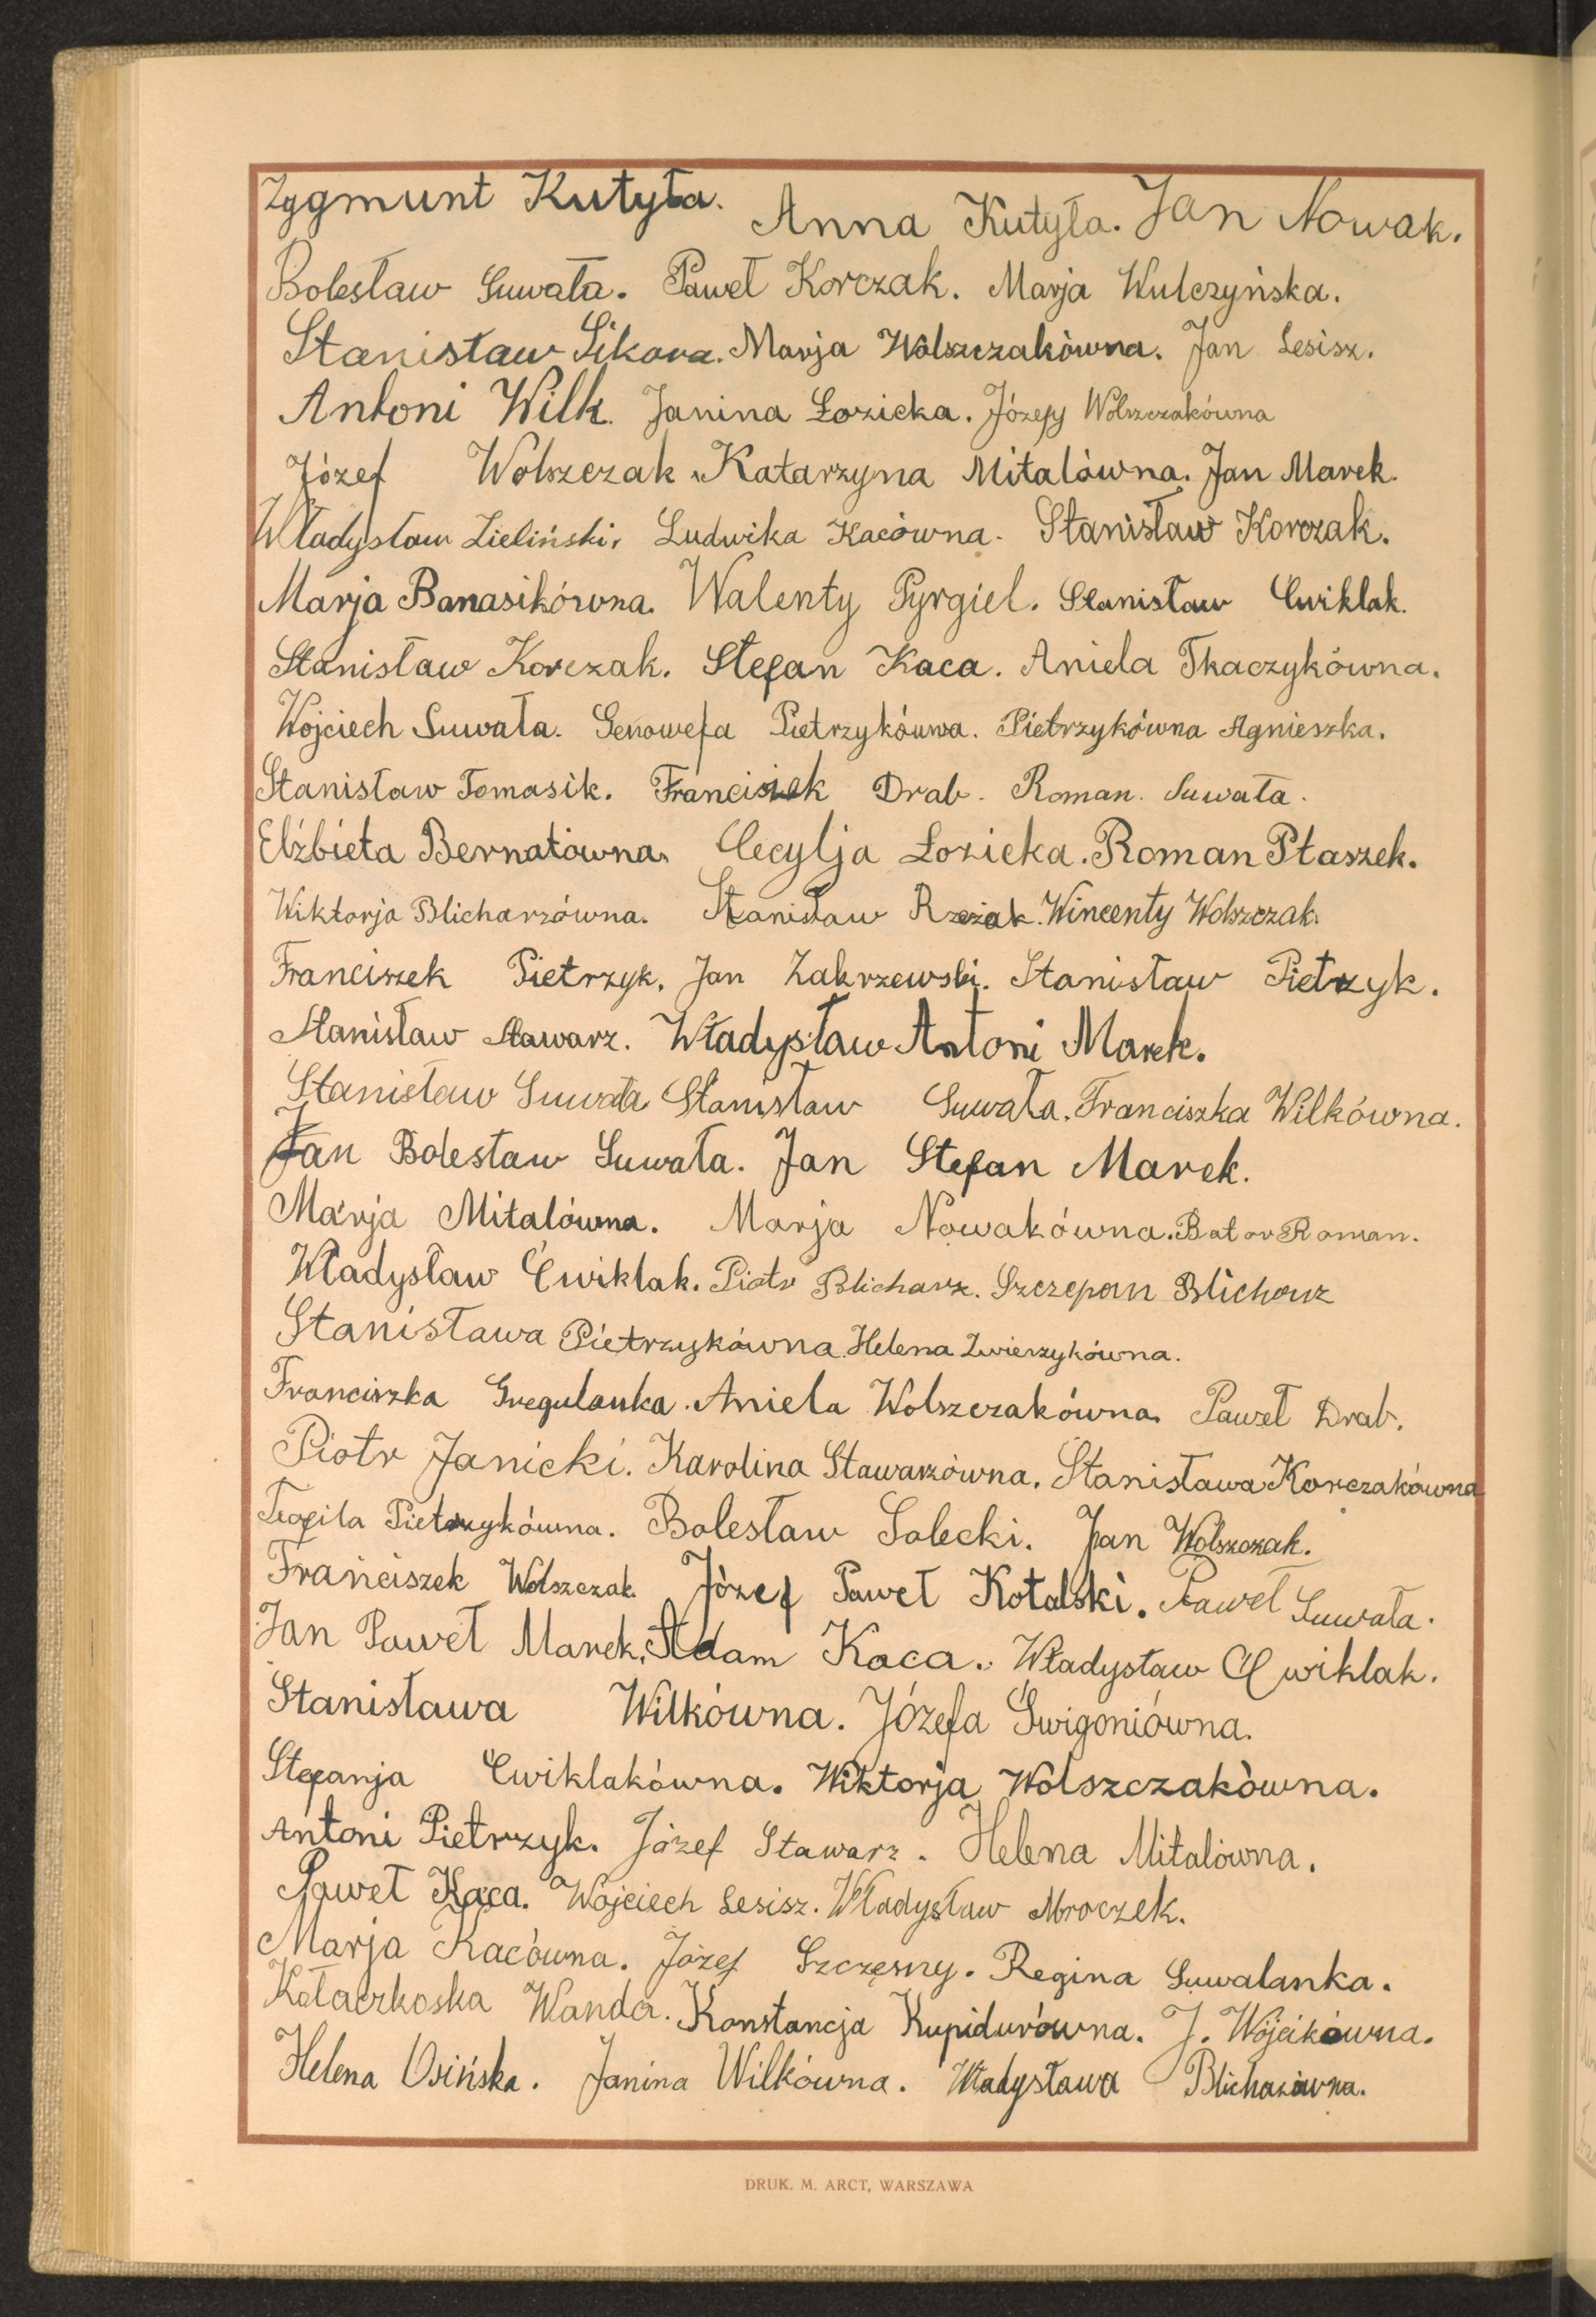 Zygmunt Kutyła. Anna Kutyła. Jan Nowak.
Bolesław Suwała. Paweł Korczak. Marja Wulczyńska.
Stanisław Sikora. Marja Wolszczakówna. Jan Lesisz.
Antoni Wilk. Janina Łozicka. Józefy Wolszczakówna
Józef Wolszczak. Katarzyna Mitalówna. Jan Marek.
Władysław Zieliński, Ludwika Kacówna. Stanisław Korczak.
Marja Banasikówna. Walenty Pyrgiel. Stanisław Cwiklak.
Stanisław Korczak. Stefan Kaca. Aniela Tkaczykówna.
Wojciech Suwała. Genowefa Pietrzykówna. Pietrzykówna Agnieszka.
Stanisław Tomasik. Franciszek Drab. Roman. Suwała.
Elżbieta Bernatówna. Cecylja Łozicka. Roman Ptaszek.
Wiktorja Blicharzówna. Stanisław Rzeżak. Wincenty Wolszczak.
Franciszek Pietrzyk. Jan Zakrzewski. Stanisław Pietrzyk.
Stanisław Stawarz. Władysław Antoni Marek.
Stanisław Suwała Stanisław Suwała. Franciszka Wilkówna.
Jan Bolesław Suwała. Jan Stefan Marek.
Marja Mitalówna. Marja Nowakówna. Bator Roman.
Władysław Ćwiklak. Piotr Blicharz. Szczepan Blicharz
Stanisława Pietrzykówna. Helena Zwierzykówna.
Franciszka Gregulanka. Aniela Wolszczakówna. Paweł Drab.
Piotr Janicki. Karolina Stawarzówna. Stanisława Korczakówna
Teofila Pietrzykówna. Bolesław Solecki. Jan Wolszczak.
Franciszek Wolszczak. Józef Paweł Kotalski. Paweł Suwała.
Jan Paweł Marek. Adam Kaca. Władysław Cwiklak.
Stanisława Wilkówna. Józefa Świgoniówna.
Stefanja Cwiklakówna. Wiktorja Wolszczakówna.
Antoni Pietrzyk. Józef Stawarz. Helena Mitalówna.
Paweł Kaca. Wojciech Lesisz. Władysław Mroczek.
Marja Kacówna. Józef Szczęsny. Regina Suwalanka.
Kołaczkoska Wanda. Konstancja Kupidurówna. J. Wójcikówna.
Helena Osińska. Janina Wilkówna. Władysława Blicharzówna.
DRUK. M. ARCT, WARSZAWA